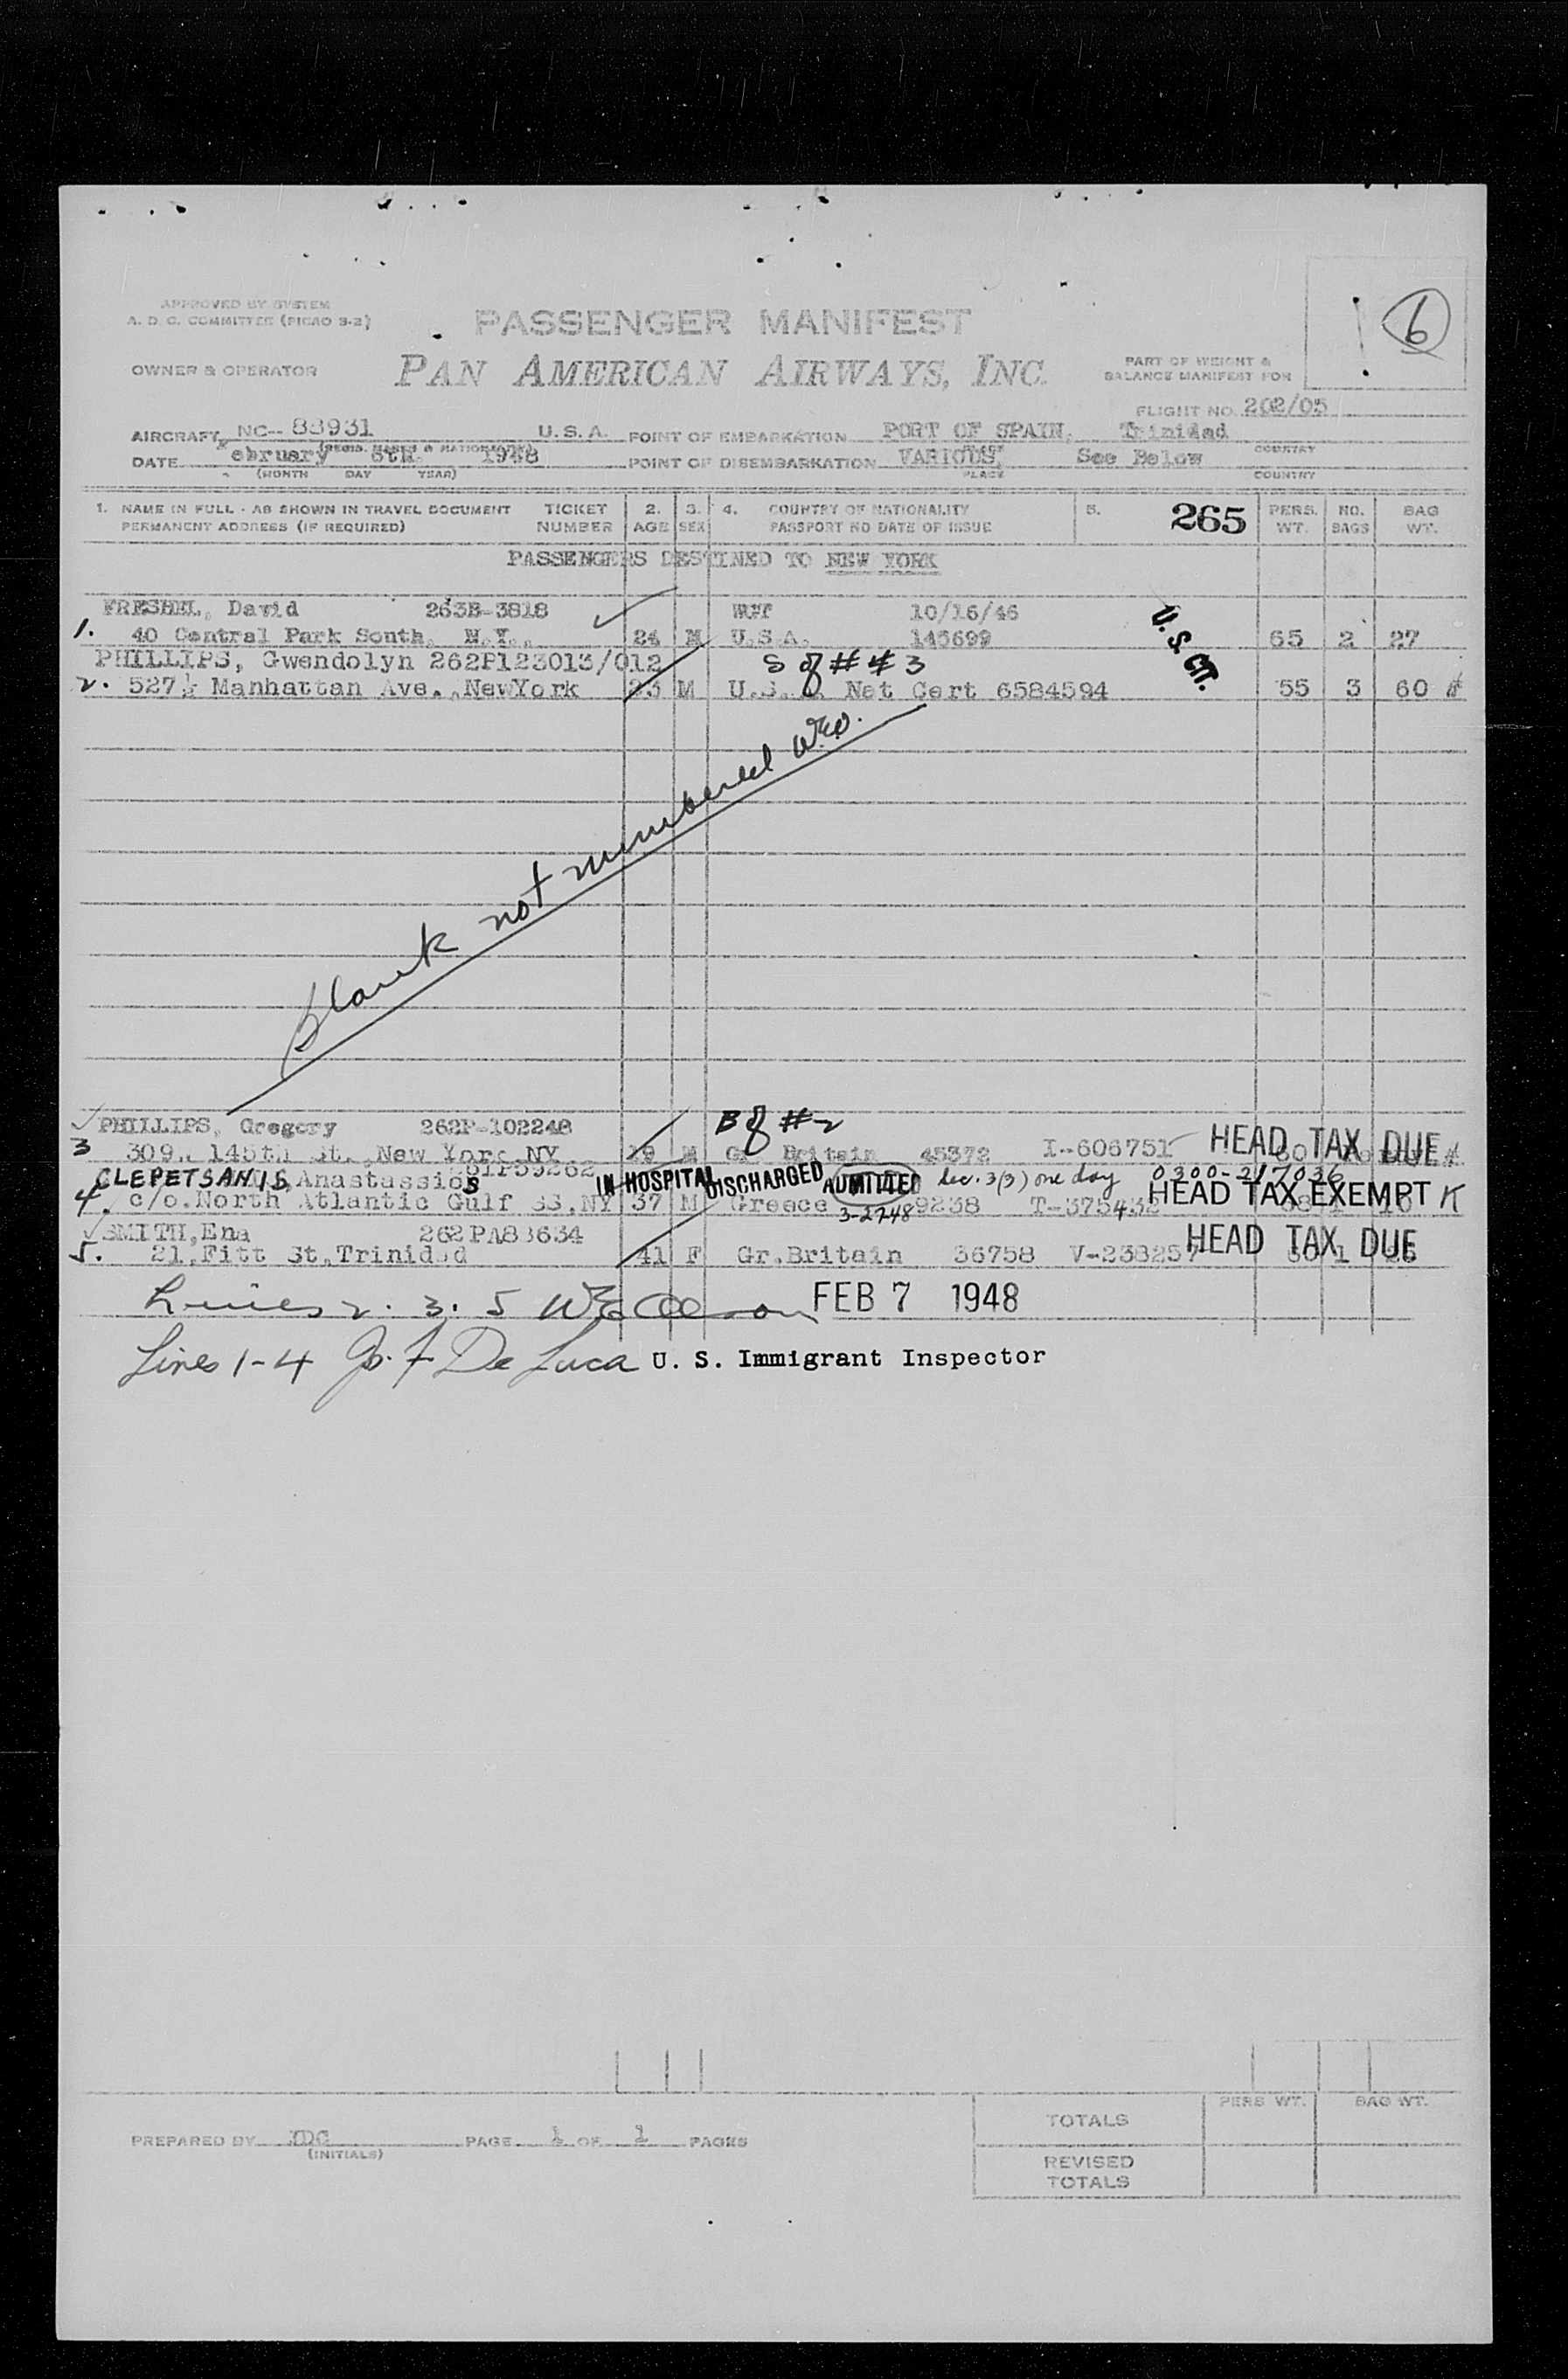 APPROVED BY SYSTEM
A. D. C. COMMITTEE (PICAO 3-2)
PASSENGER MANIFEST
6
OWNER & OPERATOR PAN AMERICAN AIRWAYS, INC.
PART OF WEIGHT &
BALANCE MANIFEST FOR
FLIGHT NO. 202/05
AIRCRAFT NC-- 88931 U. S. A. POINT OF EMBARKATION PORT OF SPAIN, Trinidad
DATE ebruary 6th. 1948 POINT OF DISEMBARKATION VARIOUS, See Below COUNTRY
(MONTH DAY YEAR) PLACE COUNTRY
1. NAME IN FULL - AS SHOWN IN TRAVEL DOCUMENT TICKET 2. 3. 4. COUNTRY OF NATIONALITY 5. 265 PERS. NO. BAG
PERMANENT ADDRESS (IF REQUIRED) NUMBER AGE SEX PASSPORT NO DATE OF ISSUE WT. BAGS WT.
PASSENGERS DESTINED TO NEW YORK
David 263B-3818 10/16/46
1. 40 Central Park South, N.Y., 24 M U.S.A. 145699 U.S. CIT. 65 2 27
PHILLIPS, Gwendolyn 262P123013/012 S of # 3
2. 527½ Manhattan Ave., NewYork 23 M U.S. Nat Cert 6584594 55 3 60
blank not numbered
PHILLIPS, Gregory 262P-102248 B of #2
3 309 145th St., New York NY 19 M Gr. Britain 45372 I-606751 HEAD TAX DUE
CLEPETSANIS, Anastassios IN HOSPITAL DISCHARGED ADMITTED sec. 3(3) one day 0300-217036
4. c/o.North Atlantic Gulf SS, NY 37 M Greece 3-27-48 9238 HEAD TAX EXEMPT K
SMITH, Ena 262PA83634
5. 21, Fitt St, Trinidad 41 F Gr.Britain 36758 V-238257 HEAD TAX DUE
Lines 2. 3. 5 FEB 7 1948
Lines 1-4 De Luca U. S. Immigrant Inspector
PREPARED BY PAGE 1 OF 1 PAGES
(INITIALS)
PERS WT. BAG WT.
TOTALS
REVISED
TOTALS